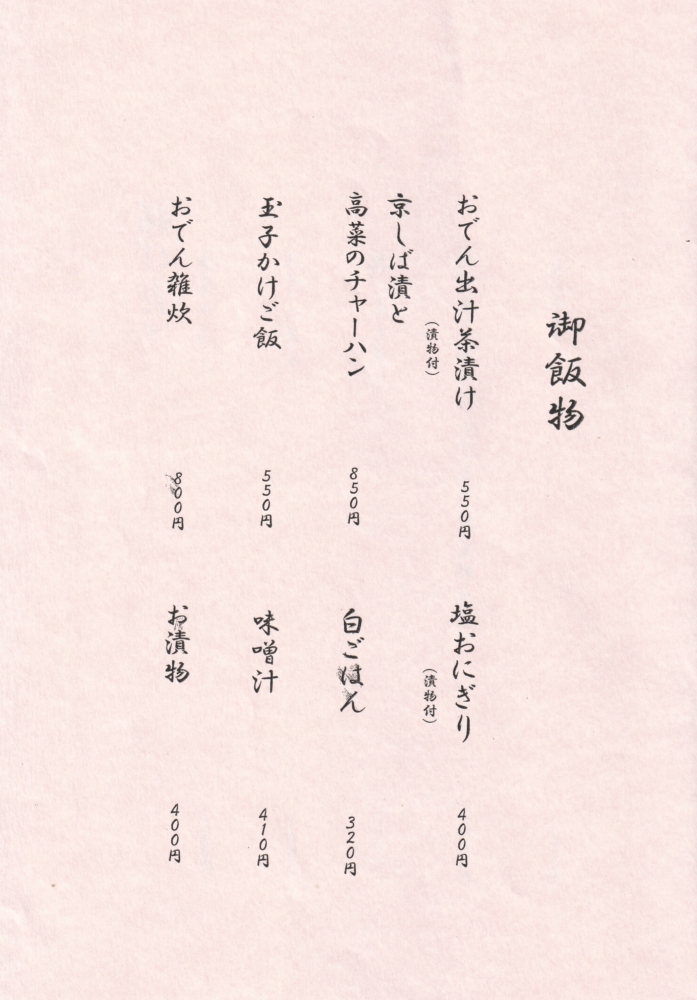 御飯物
おでん出汁茶漬け
（漬物付）
550円
京しば漬と
高菜のチャーハン
850円
玉子かけご飯
550円
おでん雑炊
800円
塩おにぎり
（漬物付）
400円
白ごはん
320円
味噌汁
410円
お漬物
400円